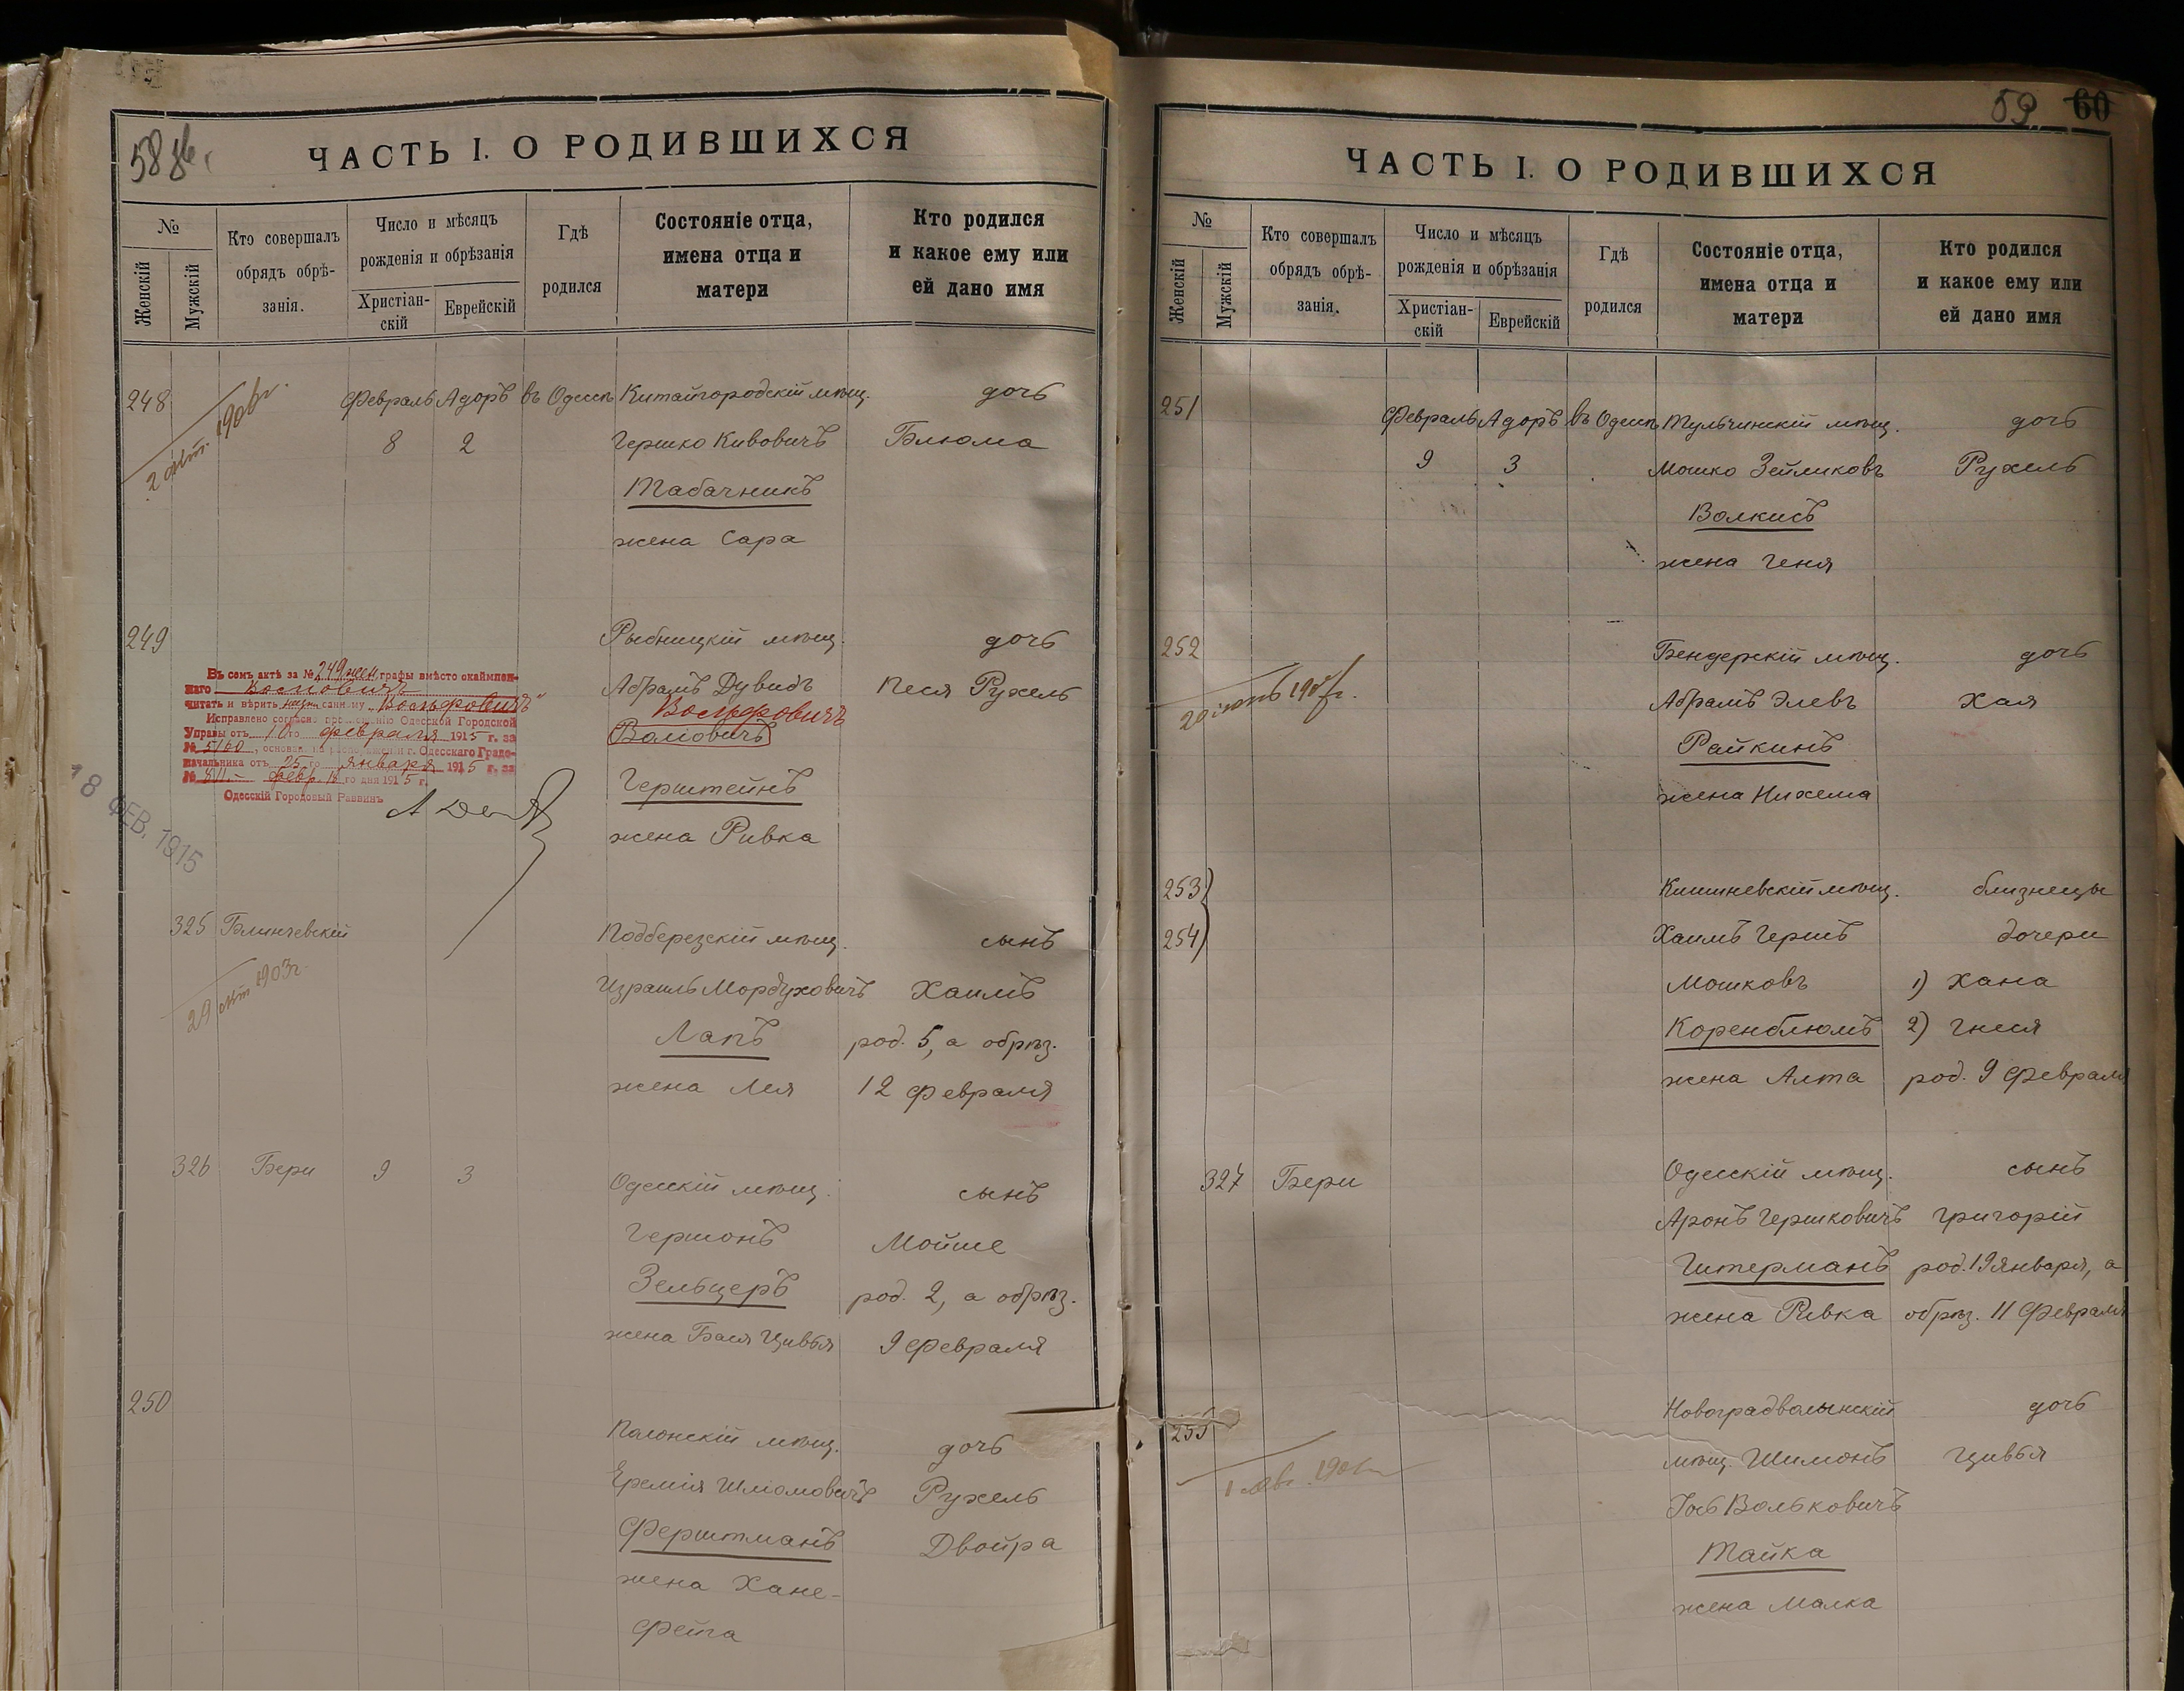 58 об.
ЧАСТЬ I. О РОДИВШИХСЯ
№
Женскій
Мужскій
Кто совершалъ
обрядъ обрѣ-
занія.
Число и мѣсяцъ
рожденія и обрѣзанія
Христіан-
скій
Еврейскій
Гдѣ
родился
Состояніе отца,
имена отца и
матери
Кто родился
и какое ему или
ей дано имя
248 Февраль Адоръ въ Одессѣ Китайгородскій мѣщ. дочь
8 2 Гершко Кивовичъ Блюма
Табачникъ
жена Сара
249 Рыбницкій мѣщ. дочь
Абрамъ Дувидъ Песя Рухель
Вольфовичъ
Герштейнъ
жена Ривка
Въ семъ актѣ за № 249 жен. графы вмѣсто окаймлен-
наго
читать и вѣрить надписанному „Вольфовичъ“
Исправлено согласно предложенію Одесской Городской
Управы отъ 10го февраля 1915 г. за
№ 5160, основан. на распоряженіи г. Одесскаго Градо-
начальника отъ 25го января 1915 г. за
№ февр. 18го дня 1915 г.
Одесскій Городовый Раввинъ
18 ФЕВ. 1915
325 Блинчевскій Подберезскій мѣщ. сынъ
Израиль Мордуховичъ Хаимъ
Лапъ род. 5, а обрѣз.
жена Лея 12 февраля
29 1903г.
326 Бери 9 3 Одесскій мѣщ. сынъ
Гершонъ Мойше
Зельцеръ род. 2, а обрѣз.
жена Бася Цивья 9 февраля
250 Полонскій мѣщ. дочь
Еремія Шломовичъ Рухель
Ферштманъ Двойра
жена Хане-
Фейга
59 60
ЧАСТЬ I. О РОДИВШИХСЯ
№
Женскій
Мужскій
Кто совершалъ
обрядъ обрѣ-
занія.
Число и мѣсяцъ
рожденія и обрѣзанія
Христіан-
скій
Еврейскій
Гдѣ
родился
Состояніе отца,
имена отца и
матери
Кто родился
и какое ему или
ей дано имя
251 Февраль Адоръ въ Одессѣ Тульчинскій мѣщ. дочь
9 3 Мошко Зейликовъ Рухель
Волкисъ
жена Геня
252 Бендерскій мѣщ. дочь
Абрамъ Элевъ Хая
Райкинъ
жена Нихема
253 Кишиневскій мѣщ. близнецы
254 Хаимъ Гершъ дочери
Мошковъ 1) Хана
Коренблюмъ 2) Гнеся
жена Алта род. 9 февраля
327 Бери Одесскій мѣщ. сынъ
Аронъ Гершковичъ Григорій
Гитерманъ род. 19 января, а
жена Ривка обрѣз. 11 февраля
255 Новоградволынскій дочь
мѣщ. Шимонъ Цивья
Іось Вольковичъ
Тайка
жена Малка